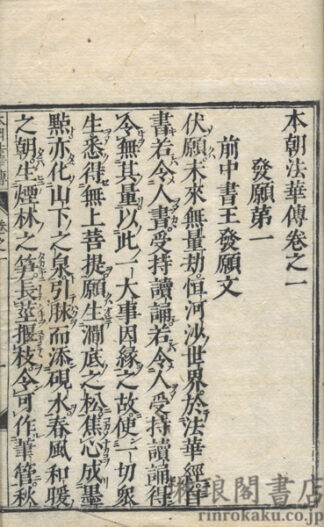 本朝法華傳卷之一
發願第一
前中書王發願文
伏願未來無量劫恒河沙世界於法華經自
書若令人書受持讀誦若令人受持讀誦得
令無其量以此一大事因緣之故使一切衆
生悉得無上菩提願生澗底之松焦心成墨
點亦化山下之泉引脉而添硯水春風和暖
之朝生煙林之筍長莖握枝令可作筆管秋
琳琅閣書店
rinrokaku.co.jp